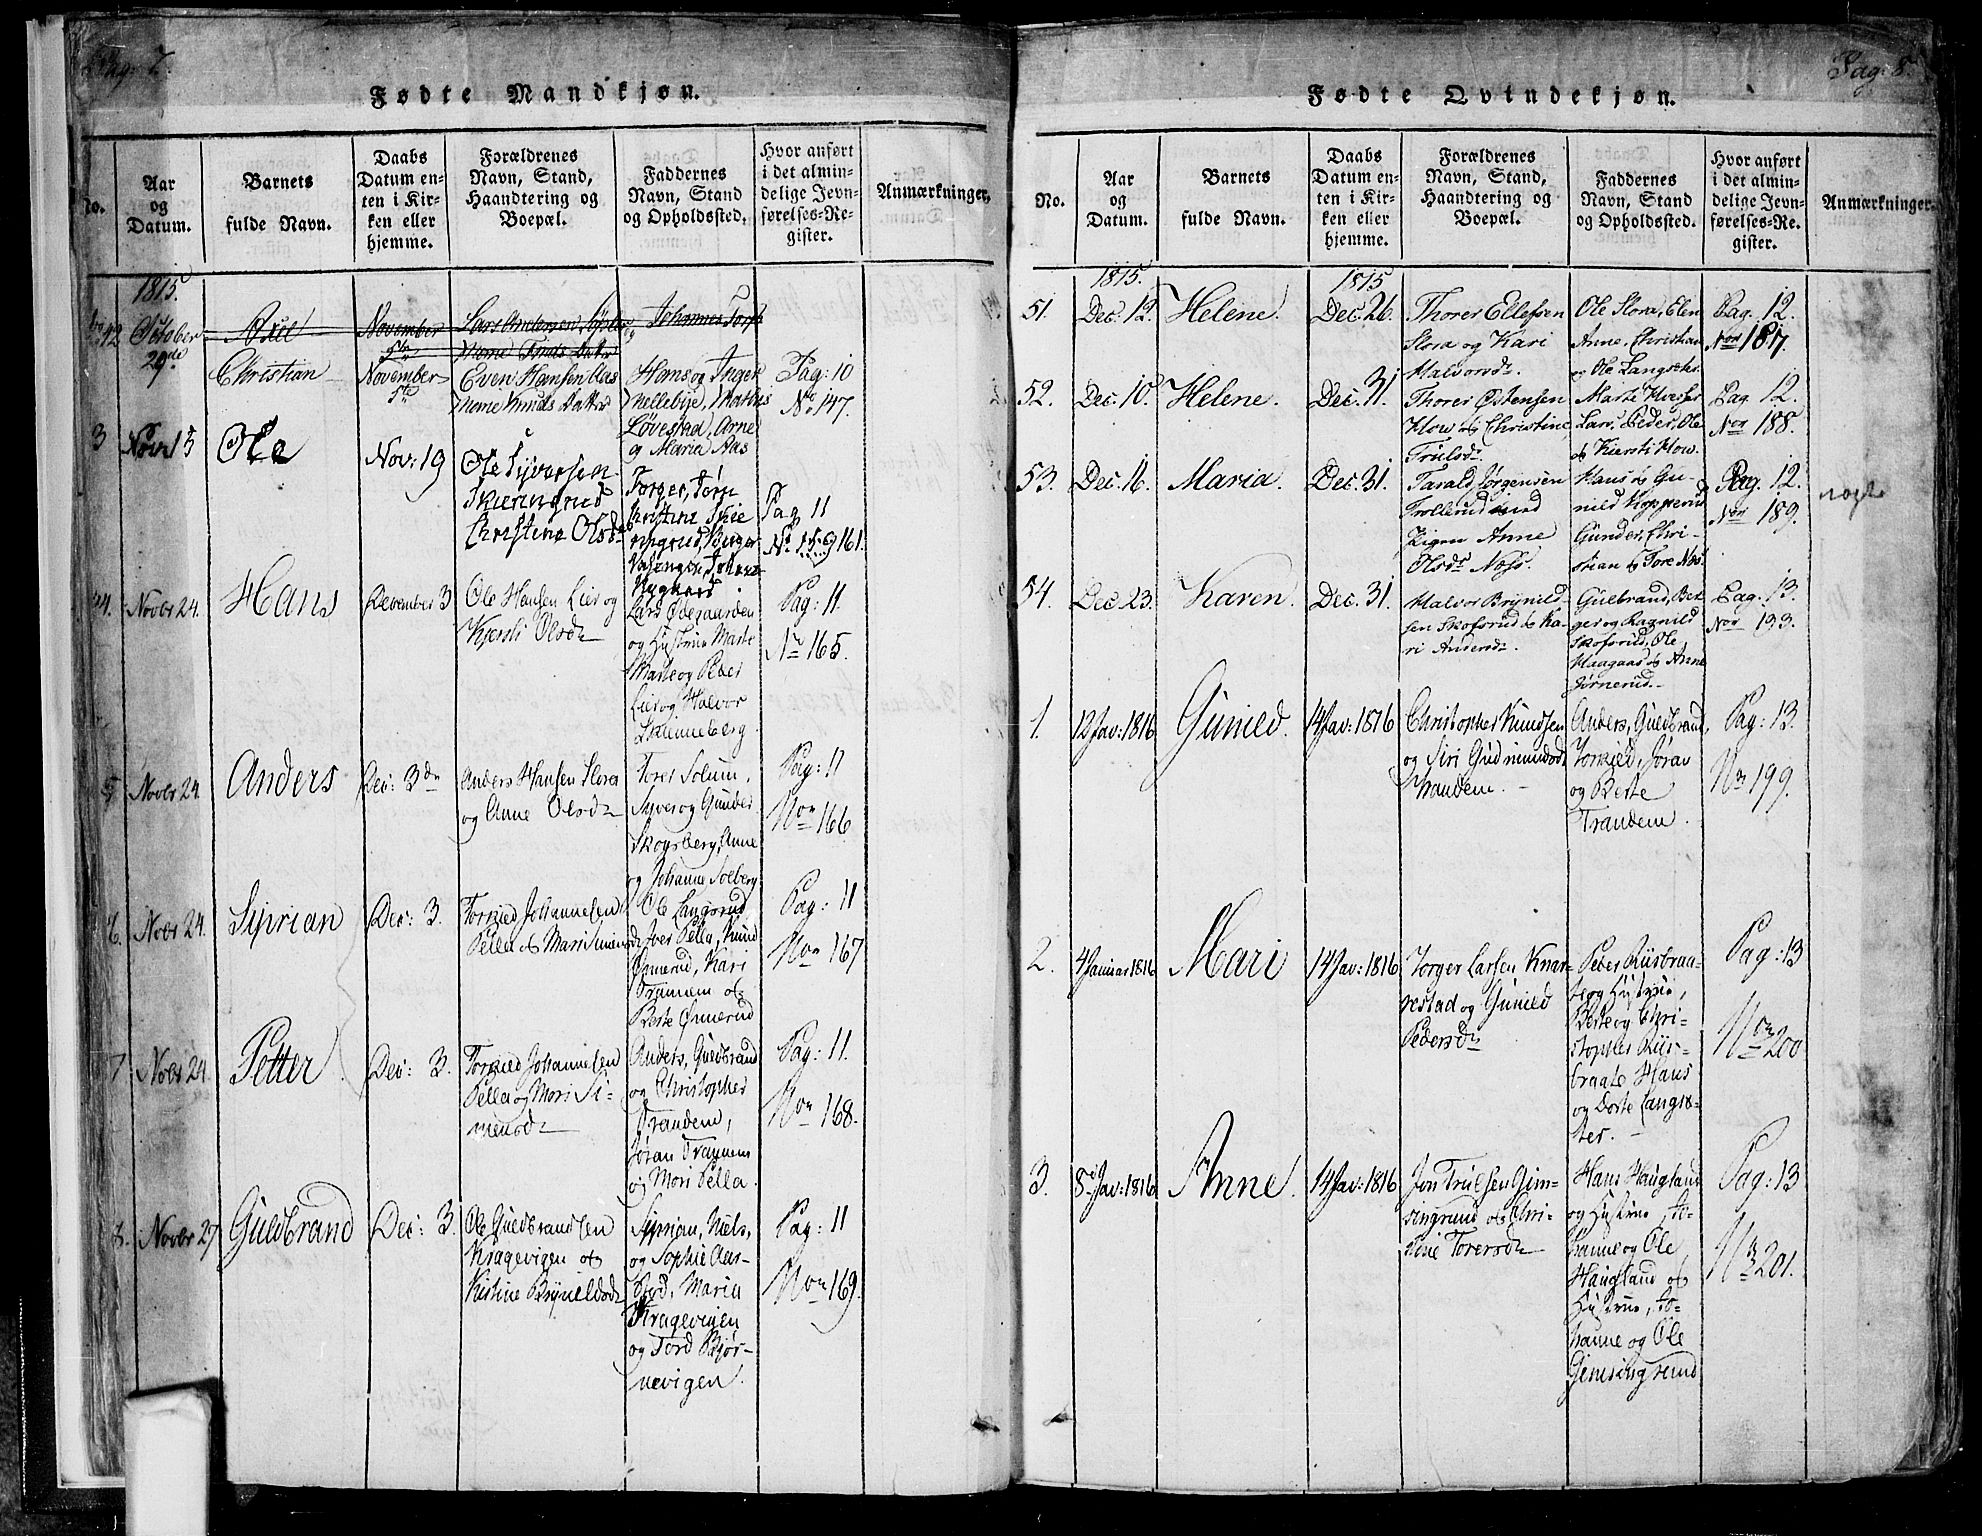 Pag: 7.
Fødte Mandkjøn.
No.
Aar
og
Datum.
Barnets
fulde Navn.
Daabs
Datum en-
ten i Kir-
ken eller
hjemme.
Forældrenes
Navn, Stand,
Haandtering og
Boepæl.
Faddernes
Navn, Stand
og Opholdssted.
Hvor anført
i det almin-
delige Jevn-
førelses-Re-
gister.
Anmærkninger.
1815.
October
29de
Christian
November
5te
Even Hansen Aas
Merne Knuds Datter
Hans og Inger
Mellebye, Mattis
Løvestad, Arne
og Maria Aas
Pag: 10
No 147.
3
Novr 15
Ole
Nov: 19
Ole Syversen
Skieringrud
Christine Olsdr
Torger, Torn
Christine Skie
ringrud, Birger
Pag 11
No 159 161.
Novbr 24.
Hans
December 3
Ole Hansen Lier og
Kjersti Olsdr
Lars Ødegaarden
og Hustrue Marte
Marte og Peder
Lier og Halvor
Lømmeberg
Pag: 11.
No 165.
5
Novbr 24.
Anders
Dec: 3de
Anders Hansen Slora
og Anne Olsdr
Torer Solum,
Syver og Gunder
Skogsberg, Anne
og Johanne Solberg
Pag: 11
Nor 166
6.
Novbr 24.
Siprian
Dec: 3.
Torkied Johannesen
Pella og Mari Simensdr
Ole Langsrud,
Iver Pella, Knud
Ømerud, Kari
Trannem og
Berte Ømerud
Pag: 11
Nor 167
7
Novbr 24
Petter
Dec: 3.
Torkied Johannesen
Pella og Mori Si-
mensdr
Anders, Guldbrand
og Christopher
Trandem,
Jøran Trannem
og Mori Pella.
Pag: 11.
Nor 168.
8.
Novbr 27
Guldbrand
Dec: 3.
Ole Guldbrandsen
Kragevigen og
Kistine Brynildsdr
Siprian, Niels,
og Sophie Aas-
stod, Maria
Kragevigen
og Tord Bjør-
nevigen.
Pag: 11
Nor 169.
Pag: 8.
Fødte Qvindekjøn.
No.
Aar
og
Datum.
Barnets
fulde Navn.
Daabs
Datum en-
ten i Kir-
ken eller
hjemme.
Forældrenes
Navn, Stand,
Haandtering og
Boepæl.
Faddernes
Navn, Stand
og Opholdssted.
Hvor anført
i det almin-
delige Jevn-
førelses-Re-
gister.
Anmærkninger.
1815.
1815
51.
Dec. 12.
Helene.
Dec. 26.
Thorer Ellefsen
Slora og Kari
Halvorsdr.
Ole Slora, Elen
Anne, Christian
og Ole Langsæter
Pag. 12.
Nor 187.
52.
Dec. 10.
Helene.
Dec. 31.
Thorer Østensen
Mow og Christine
Trulsdr.
Lars, Peder, Ole
og Kiersti Mow.
Pag. 12.
Nor 188.
53.
Dec. 16.
Maria.
Dec. 31.
Tarald Jørgensen
Trollerud med
Pigen Anne
Olsdr Næss.
Hans og Gu-
nild Kopperud
Gunder, Chri-
stian og Tore Næss
Pag. 12.
Nor 189.
54.
Dec 23.
Karen.
Dec. 31.
Halvor Brynild-
sen Skofsrud og Ka-
ri Andersdr.
Gulbrand, Ber
ger og Ragnild
Skofsrud, Ole
Haagaas og Anne
Jørnerud.
Pag. 13.
Nor 193.
1.
12 Jav: 1816
Gunild.
14 Jav: 1816
Christopher Knudsen
og Siri Gudmundsdr
Trandem.
Anders, Guldbrand,
Torkied, Jøran
og Berte
Trandem.
Pag: 13.
Nr 199.
2.
4 Januar 1816
Mari
14 Jav: 1816
Torger Larsen Knar-
restad og Gunild
Pedersdr
Peter Riisbraa-
te og Hustrue,
Berte og Chri-
stopher Riis-
braate Hans
og Dorte Langsæ-
ter.
Pag: 13
Nor 200
3.
8de Jav: 1816
Anne.
14 Jav: 1816
Jon Trulsen Gim-
singrund og Chri-
stine Torersdr
Hans Haugland
og Hustrue, Jo-
hanne og Ole
Haugland og
Hustrue, Jo-
hanne og Ole
Gimsingrund
Pag: 13
Nr 201.